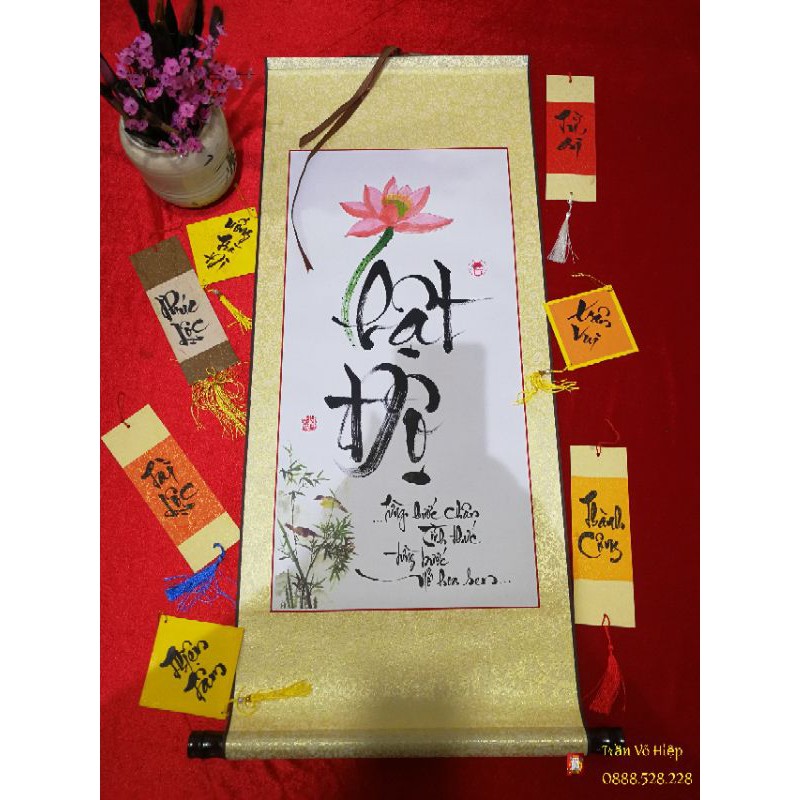 Phật
Độ
...từng bước chân
tỉnh thức
từng bước
nở hoa sen...
Phúc
Lộc
Tài
Lộc
Thiện
Tâm
Yên
Vui
Thành
Công
Trần Võ Hiệp
0888.528.228